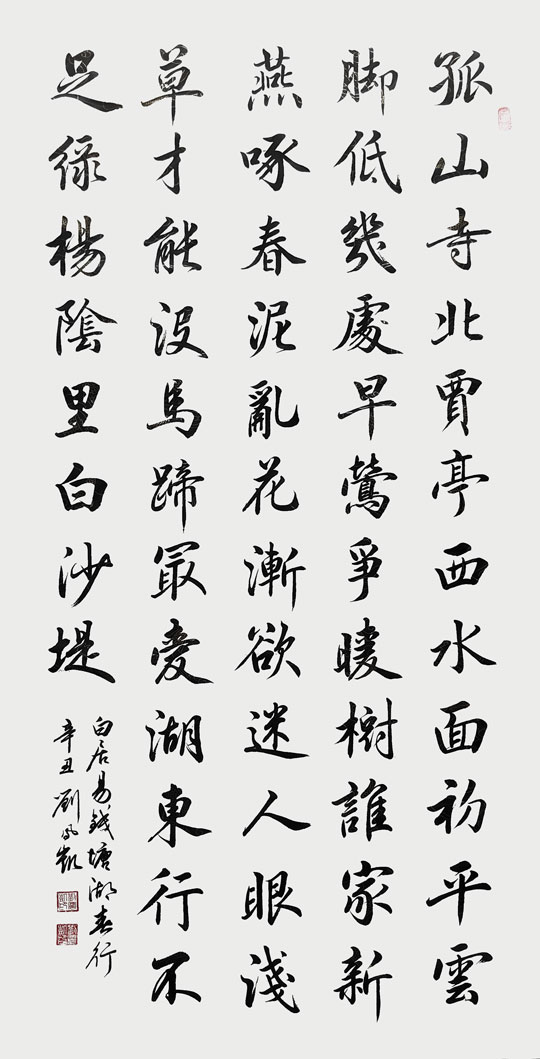 孤山寺北賈亭西水面初平雲
脚低幾處早鶯爭暖樹誰家新
燕啄春泥亂花漸欲迷人眼淺
草才能没馬蹄最愛湖東行不
足綠楊陰里白沙堤
白居易錢塘湖春行
辛丑劉鳳凱